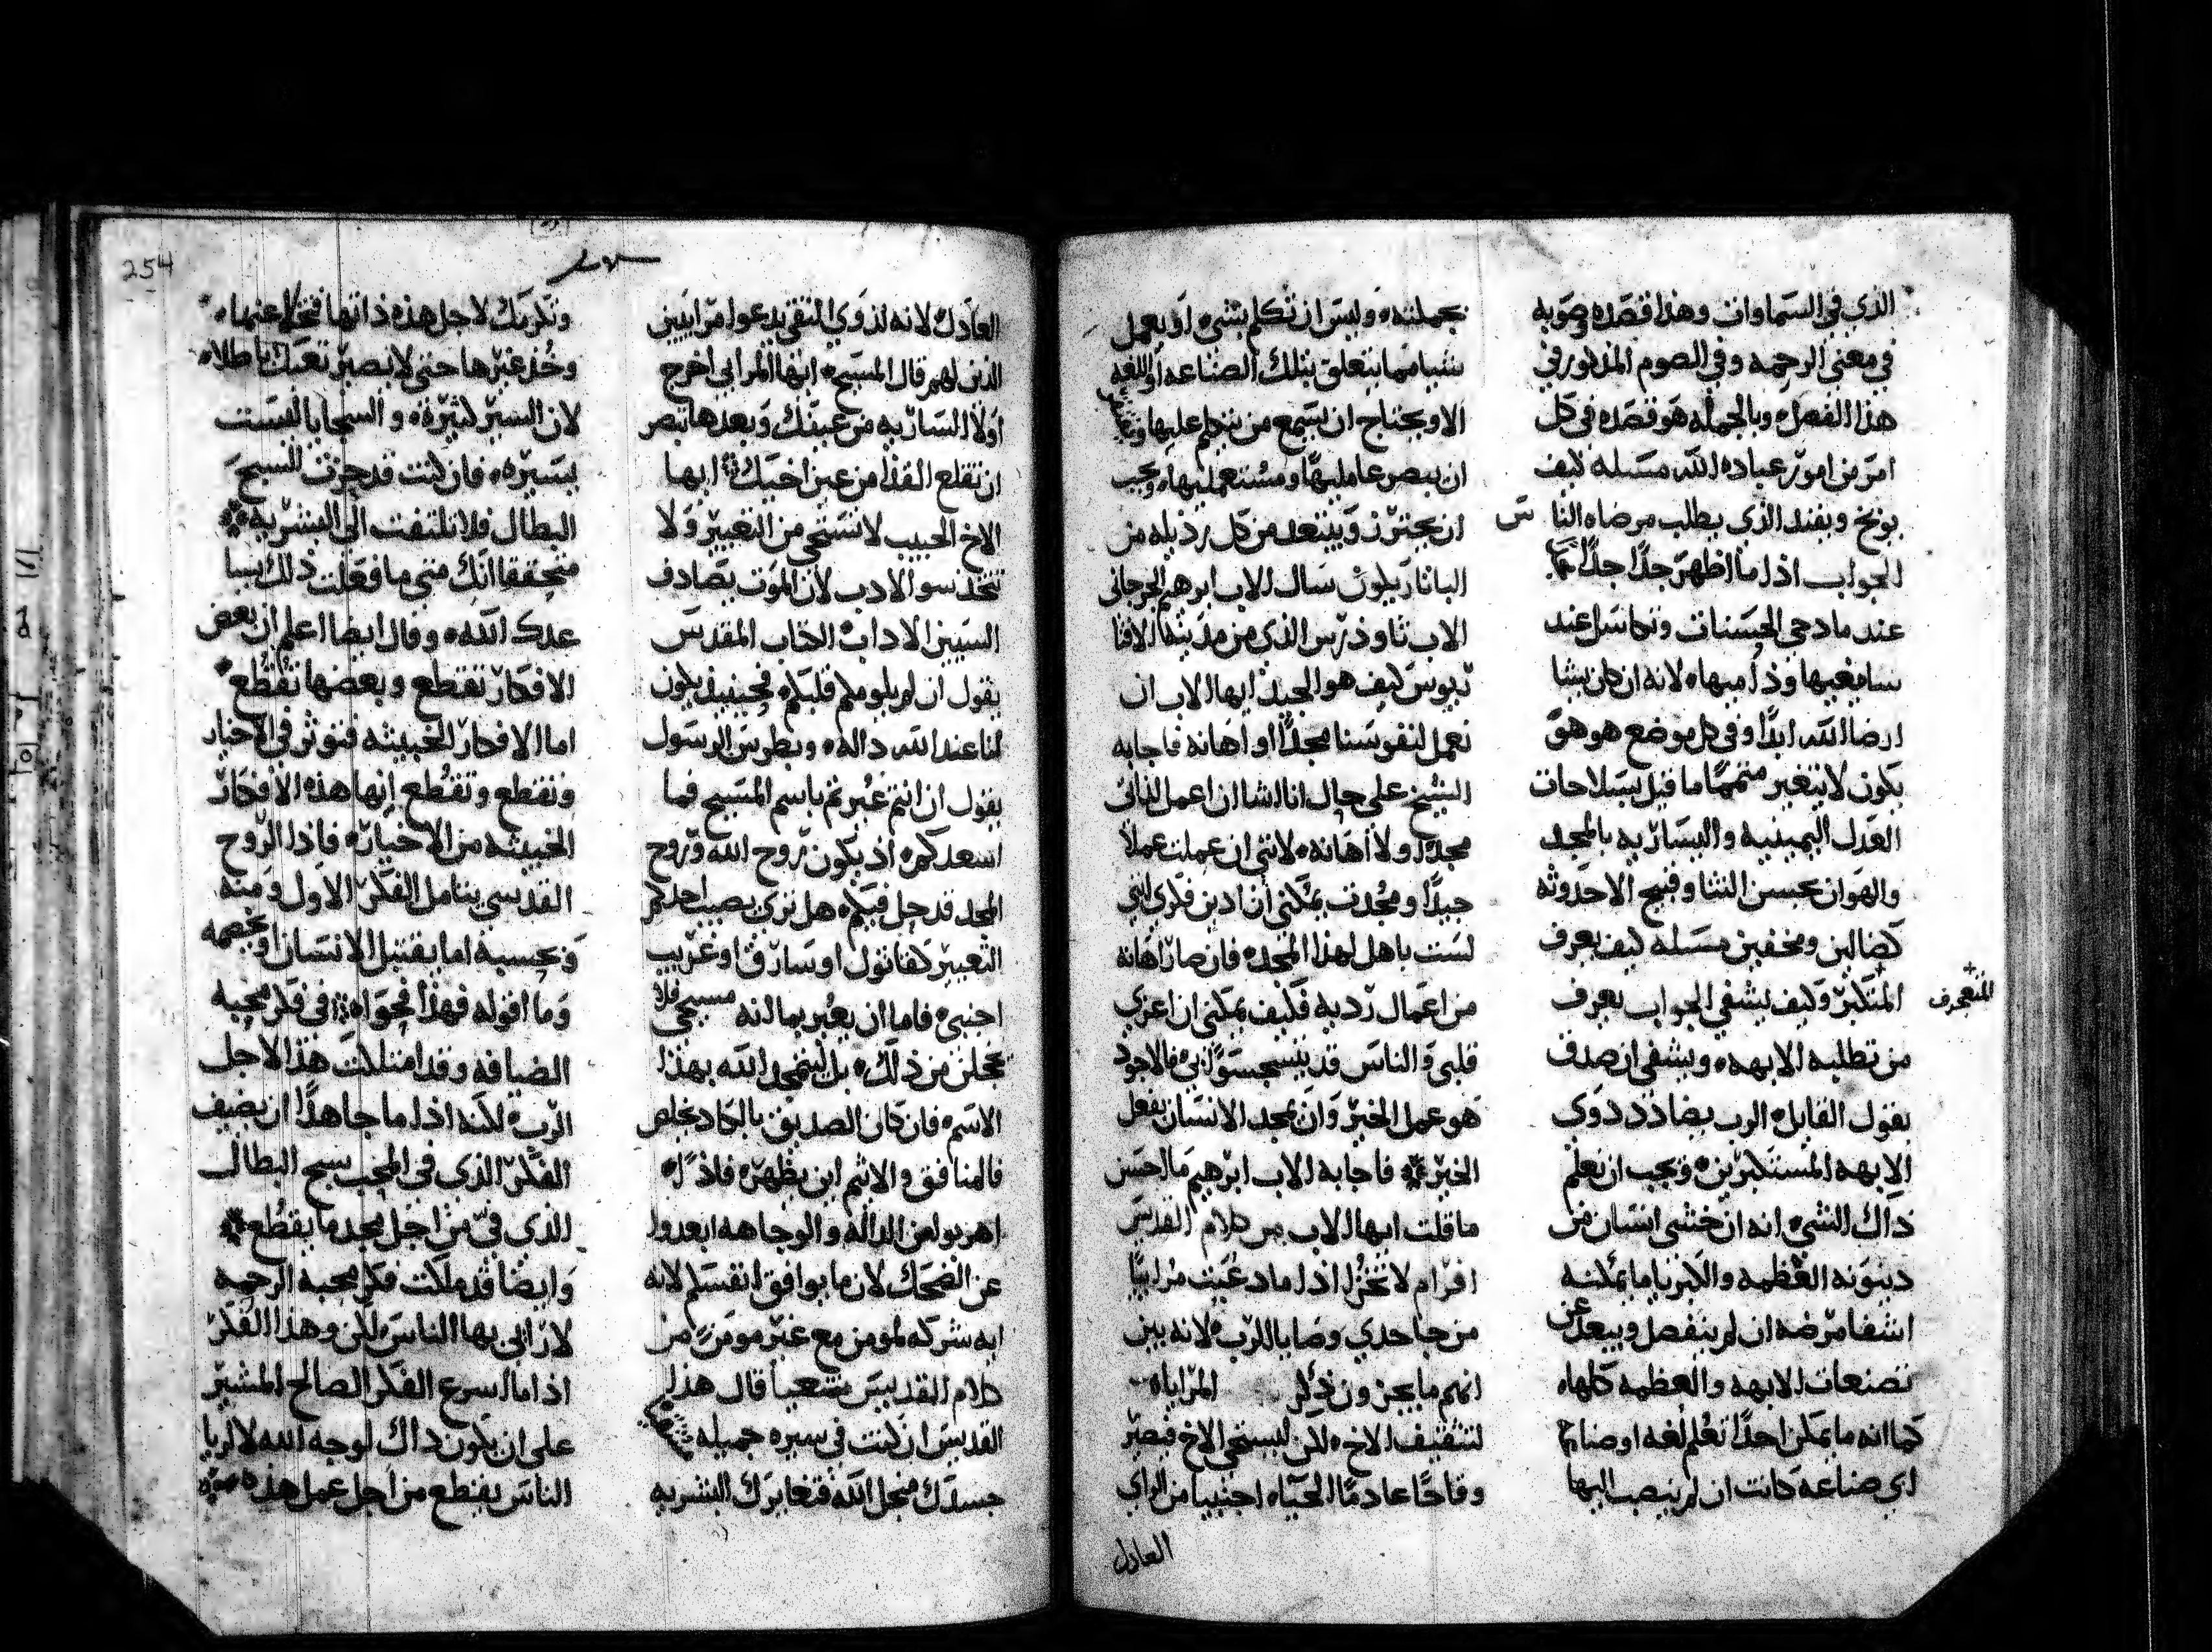 الذي في السماوات وهذا قصده وصوبه
في معنى الرحمه وفي الصوم المذكور في
هذا الفصل وبالجمله هو قصده في كل
امر من امور عباده الله مسله كيف
يوبخ ويفند الذي يطلب مرضاه الناس
الجواب اذا ما اظهر جدًا جدًا
عند مادحي الحسنات وتكاسل عند
سامعيها وذاميها لانه ان كان يشا
ارضا الله ابدًا وفي كل موضع هو هو
يكون لا يتغير متممًا ما قيل بسلاحات
العدل اليمينيه واليساريه بالمجد
والهوان بحسن الثنا وقبيح الاحدوثه
كضالين ومحقين مسله كيف يعرف
المتكبر وكيف يشفي الجواب يعرف
المتعجرف
من تطلبه الابهه ويشفي ان صدف
بقول القايل الرب يضادد ذوي
الابهه المستكبرين ويجب ان نعلم
ذاك الشي انه ان خشي انسان من
دينونه العظمه والكبريا ما يمكنه
اشفا مرضه ان لم ينفصل ويبعد عن
تصنعات الابهه والعظمه كلها
كما انه ما يمكن احدًا تعلم لغه او صناعه
اي صناعه كانت ان لم ينصب اليها
بجملته وليس ان تكلم بشي او يعمل
شيا مما يتعلق بتلك الصناعه او اللغه
الا ويحتاج ان يسمع من يتكلم عليها
ان يبصر عامليها ومستعمليها ويجب
ان يحترز ويبتعد من كل رذيله من
سال الاب ابرهيم الجرجاني
الاب ثاوذرس الذي من مدينة الافثا
ريوس كيف هو الجيد ايها الاب ان
نعمل لنفوسنا مجدًا او اهانه فاجابه
الشيخ على حال انا اشا ان اعمل لذاتي
مجدًا ولا اهانه لانني ان عملت عملا
جيدًا ومجدت يمكني ان ادين فكري انني
لست باهل لهذا المجد فان صار اهانه
من اعمال رديه فكيف يمكني ان اعزي
قلبي والناس قد ينسجسوا لي فالاجود
هو عمل الخير وان يمجد الانسان بفعل
الخير فاجابه الاب ابرهيم ما احسن
ما قلت ايها الاب من كلام القديس
افرام لا تحزن اذا ما دعيت مراييًا
من جاحدي وصايا الرب لانه بين
انهم ما يحزنون المراياه
لتثقيف الاخ لكن ليستحي الاخ فيصير
وقاحًا عادمًا الحياه اجنبيا من الراي
العادل
254
العادل لانه لذوي التقى يدعوا مراييين
الذين لهم قال المسيح ايها المرايي اخرج
اولًا الساريه من عينك وبعدها تبصر
ان تقلع القذا من عين اخيك ايها
الاخ الحبيب لا تستحي من التعيير ولا
تتخذ سو الادب لان الموت يصادف
السيين الاداب الكتاب المقدس
يقول ان لم يلومكم قلبكم فحينيذ يكون
لنا عند الله داله وبطرس الرسول
يقول ان انتم عيرتم باسم المسيح فما
اسعدكم اذ يكون روح الله وروح
المجد قد حل فيكم هل ترى يصيب احدكم
التعيير كقاتول او سارق او غريب
اجنبي فاما ان يعير بما انه مسيحي فلا
يخجلن من ذلك بل ليتمجد الله بهذا
الاسم فان كان الصديق بالكاد يخلص
فالمنافق والاثم اين يظهر فاذا
اهربوا من الداله والوجاهه ابعدوا
عن الضحك لان ما يوافق انقسام لانه
ايه شركه لمومن مع غير مومن من
كلام القديس شعيا قال هذا
القديس ان كنت في سيره جميله
جسدك من اجل الله فتغايرك البشريه
وتكرمك لاجل هذه ذاتها فتخلا عنها
وخذ غيرها حتى لا يصير تعبك باطلا
لان السير كثيرة والسجايا ليست
يسيره فان كنت قد حزت السبح
البطال فلا تلتفت الى البشريه
متحققا انك متى ما فعلت ذلك
عدك الله وقال ايضا اعلم ان بعض
الافكار تقتطع وبعضها تقتطع
اما الافكار الخبيثه فتوثر في الاخيار
وتقتطع وتقتطع انها هذه الافكار
الخبيثه من الاخيار فاذا الروح
القدسي يتامل الفكر الاول ومنه
وبحسبه اما يقتبل الانسان او يخصمه
وما اقوله فهذا فحواه في فكر محبه
الضيافه وقد امتلكت هذا لاجل
الرب لكنه اذا ما جا هذا ان يضيف
الفكر الذي في المحب سبح البطال
الذي في من اجل مجد ما يقطع
وايضا قد ملكت فكر محبه الرحمه
لارايي بها الناس لكن وهذا الفكر
اذا ما اسرع الفكر الصالح المشير
على ان يكون ذاك لوجه الله لا لريا
الناس يقتطع من اجل عمل هذه